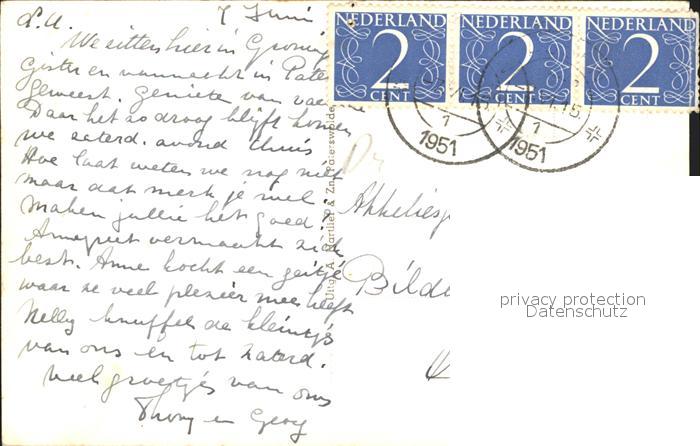 L.A. 7 Juni
We zitten hier in Gronin
Gister en vannacht in Pater
geweest. Genieten van
Daar het zo droog blijft komen
we zaterd. avond thuis
Hoe laat weten we nog niet
maar dat merk je wel.
Maken jullie het goed
Annegriet vermaakt zich
best. Anne kocht een geitje
waar ze veel plezier mee heeft
Nelly knuffel de kleintjes
van ons en tot zaterd.
veel groetjes van ons
en
Uitg. A. Hartlief & Zn, Paterswolde
NEDERLAND NEDERLAND NEDERLAND
2 2 2
CENT CENT CENT
1 1
1951 1951
Bilde
privacy protection
Datenschutz